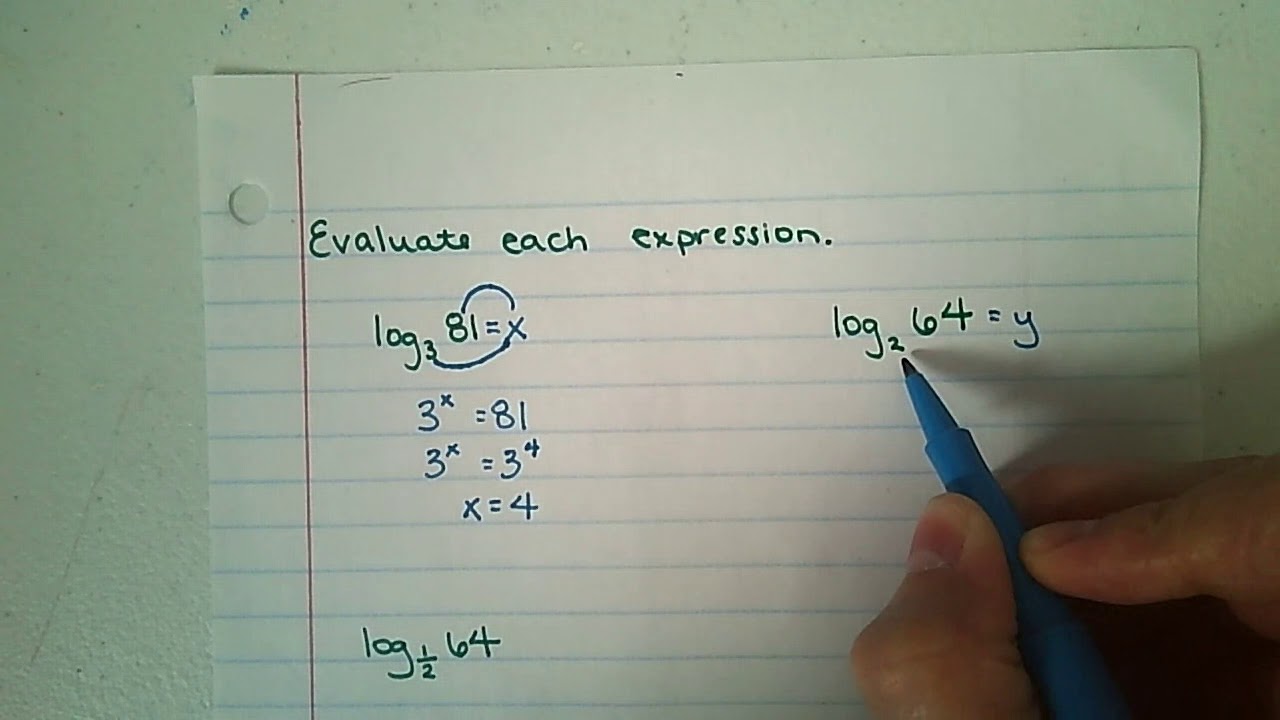 Evaluate each expression.
log₃ 81 = x
3ˣ = 81
3ˣ = 3⁴
x = 4
log₂ 64 = y
log½ 64